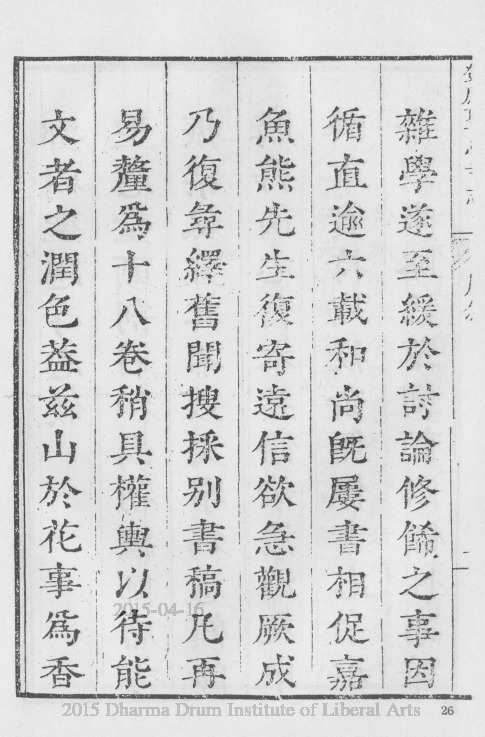 雜學遂至緩於討論修飾之事因
循直逾六載和尚旣屢書相促嘉
魚熊先生復寄遠信欲急觀厥成
乃復尋繹舊聞搜採別書稿凡再
易釐爲十八卷稍具權輿以待能
文者之潤色葢茲山於花事爲香
2015-04-16
2015 Dharma Drum Institute of Liberal Arts
26